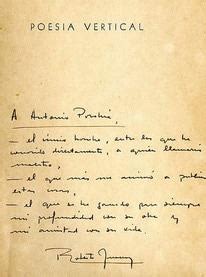 POESIA VERTICAL
A Antonio Porchia,
— el único hombre, entre los que he
conocido directamente, a quien llamaría
maestro,
— el que más me animó a publicar
estas cosas,
— el que se ha ganado para siempre
mi profundidad con su obra y
mi amistad con su vida.
Roberto Juarroz